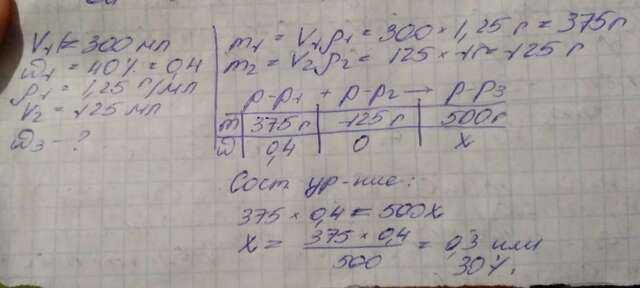 V₁ = 300 мл
ω₁ = 40% = 0,4
ρ₁ = 1,25 г/мл
V₂ = 125 мл
ω₃ - ?
m₁ = V₁ρ₁ = 300 × 1,25 г = 375г
m₂ = V₂ρ₂ = 125 × 1г = 125 г
р-р₁ + р-р₂ → р-р₃
m 375г 125г 500г
ω 0,4 0 x
Сост ур-ние:
375 × 0,4 = 500x
x = 375 × 0,4 / 500 = 0,3 или
30%.